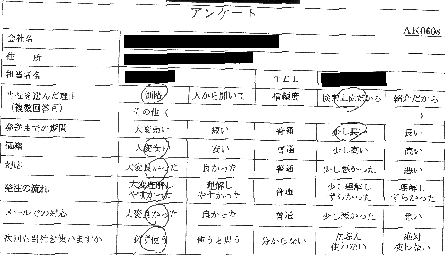 アンケート
AK0608
会社名
住 所
担当者名 TEL
当社を選んだ理由 価格 人から聞いて 信頼度 従来品だから 紹介だから
(複数回答可) その他 (
発送までの期間 大変短い 短い 普通 少し長い 長い
価格 大変安い 安い 普通 少し高い 高い
対応 大変良かった 良かった 普通 少し悪かった 悪い
発注の流れ 大変理解しやすかった 理解しやすかった 普通 少し理解しずらかった 理解しずらかった
メールでの対応 大変良かった 良かった 普通 少し悪かった 悪い
次回も当社を使いますか 必ず使う 使うと思う 分からない 使わない 絶対使わない